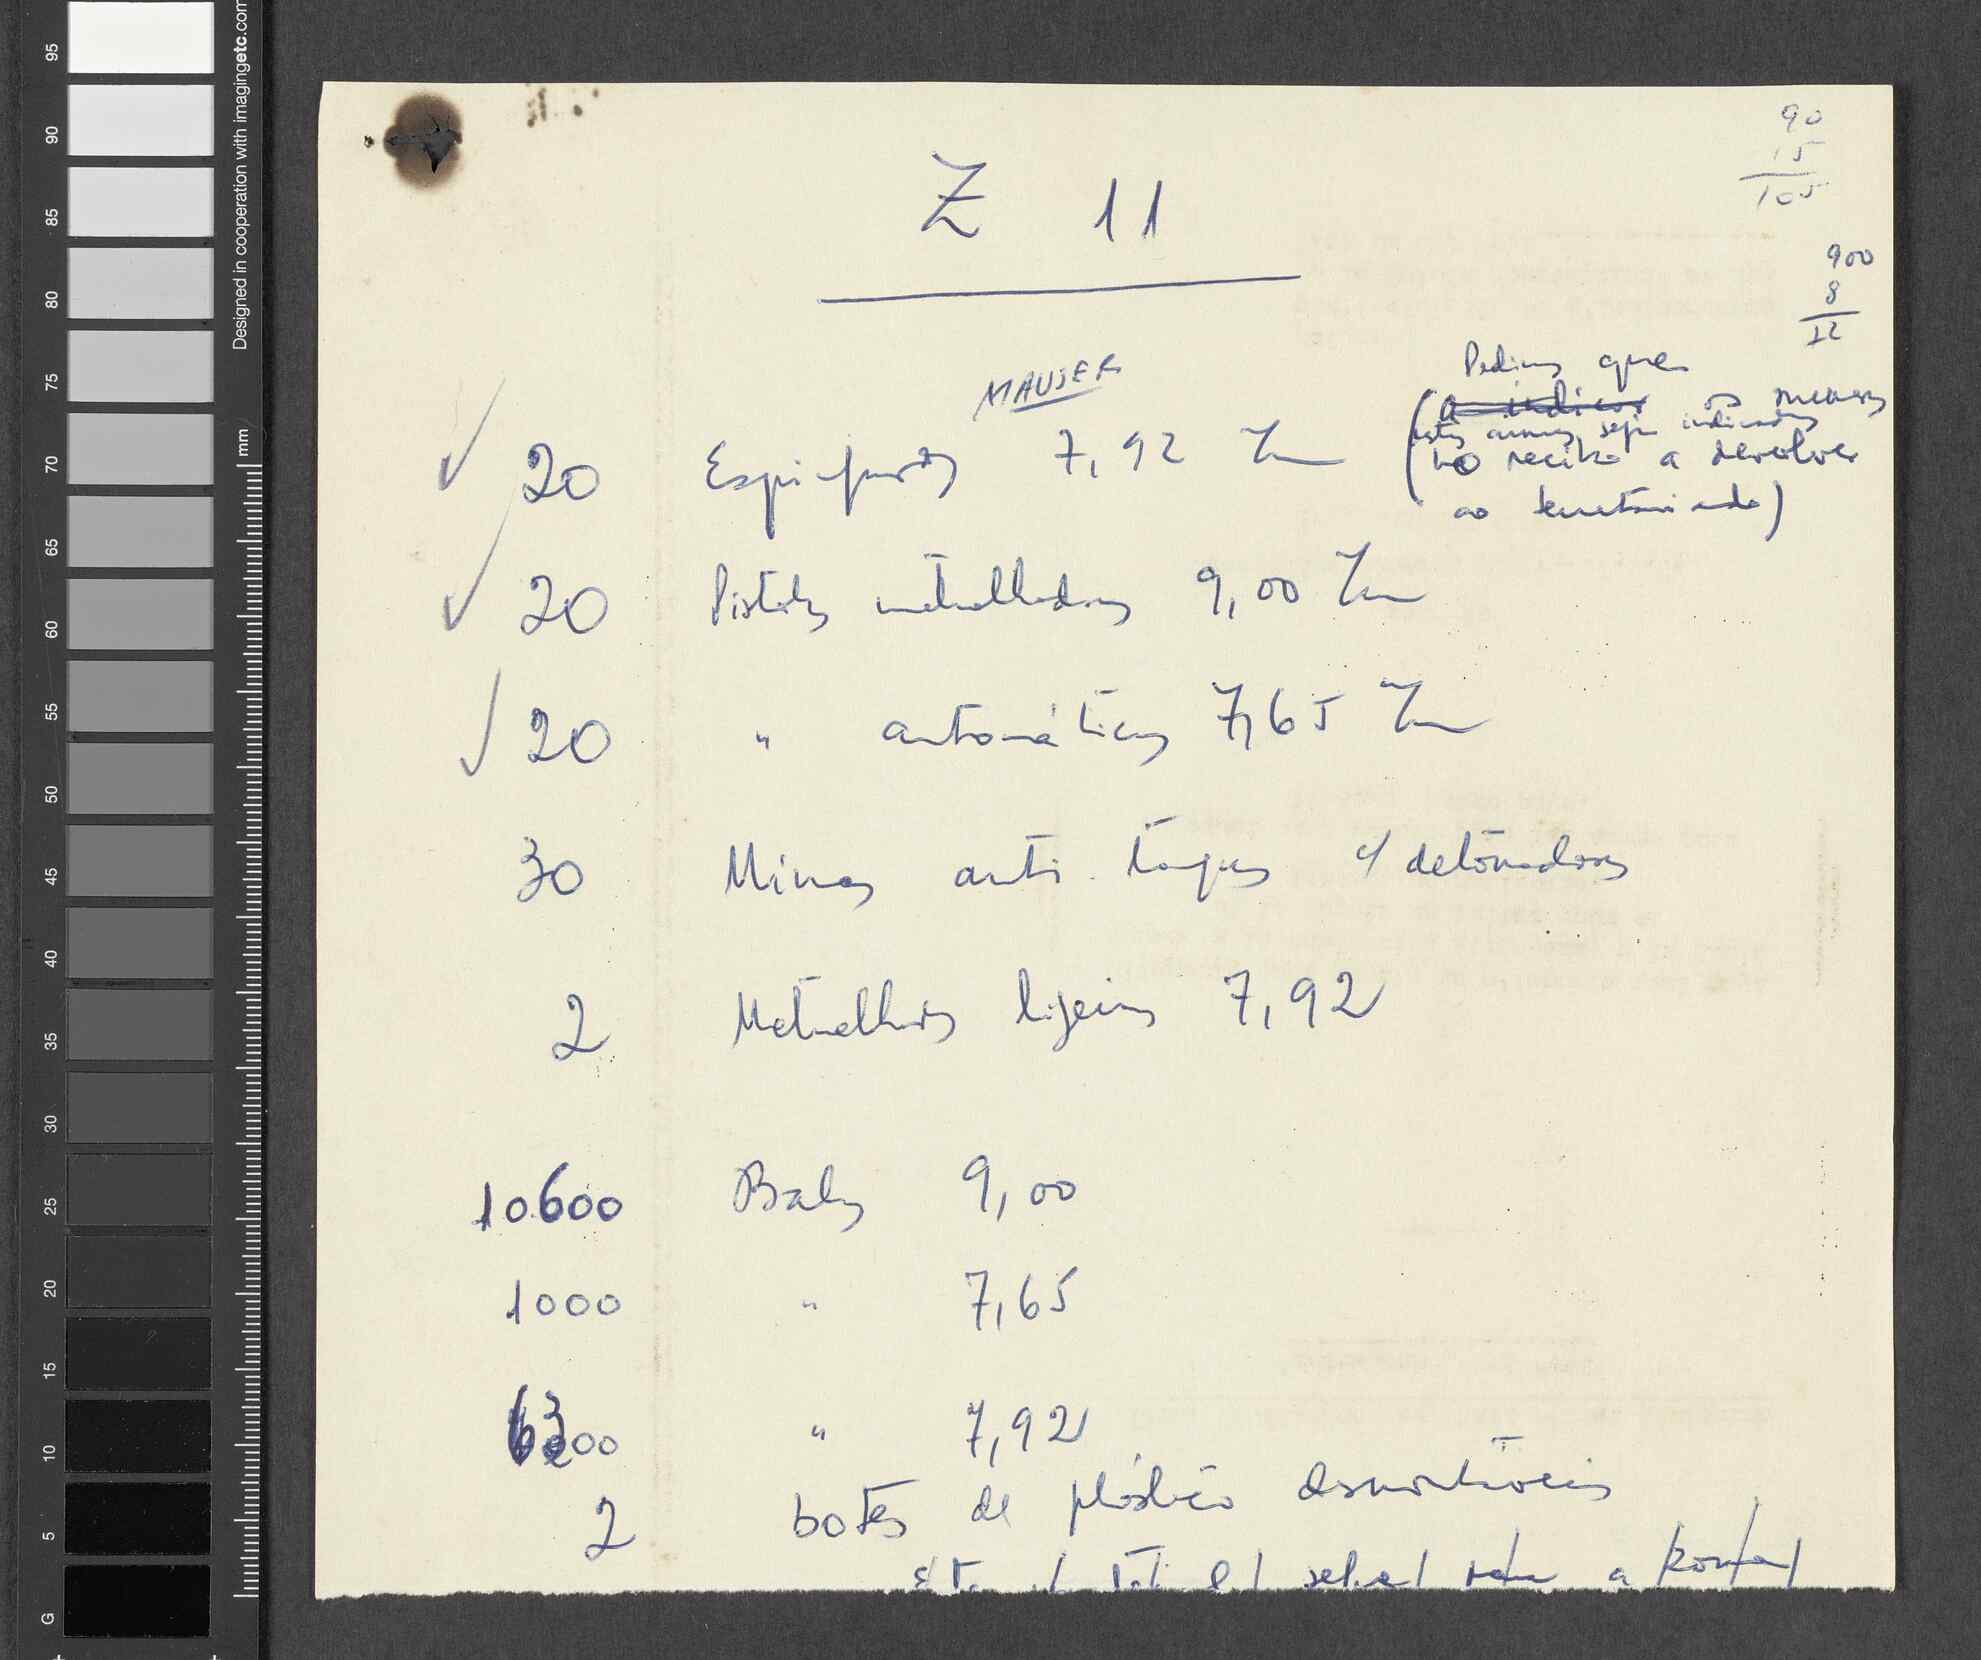 90
15
105
Z 11
900
8
12
MAUSER
Pedimos que
20 Espingardas 7,92 m/m (a indicar os números
destas armas seja indicados
no recibo a devolver
ao Secretariado)
20 Pistolas metralhadoras 9,00 m/m
20 " automáticas 7,65 m/m
30 Minas anti-tanques c/ detonadores
2 Metralhadoras ligeiras 7,92
10.600 Balas 9,00
1000 " 7,65
6300 " 7,92
2 botes de plástico desmontáveis
a
95
90
85
80
75
70
65
60
55
50
45
40
35
30
25
20
15
10
5
G
mm
Designed in cooperation with imagingetc.com